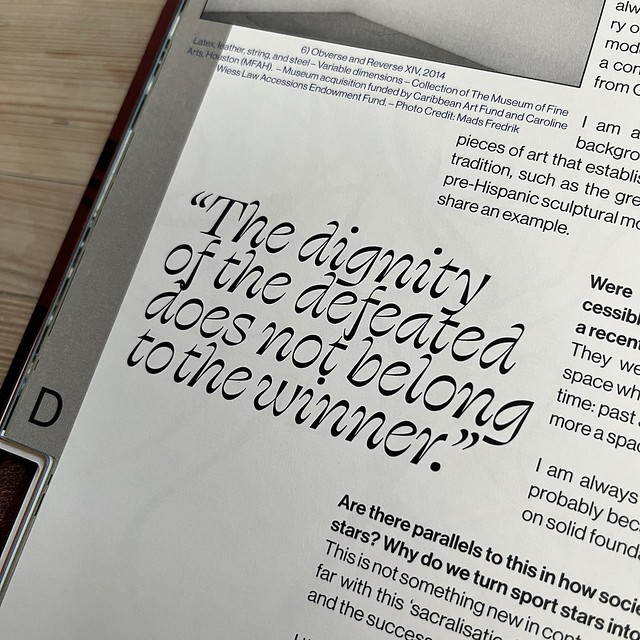 6) Obverse and Reverse XIV, 2014
Latex, leather, string, and steel – Variable dimensions – Collection of The Museum of Fine
Arts, Houston (MFAH). – Museum acquisition funded by Caribbean Art Fund and Caroline
Wiess Law Accessions Endowment Fund. – Photo Credit: Mads Fredrik
from
I am
pieces of art that
tradition, such as the
pre-Hispanic sculptural
share an example.
“The dignity
of the defeated
does not belong
to the winner.”
D
Were
a recent
They
space
time: past
more a
I am always
probably
on solid
Are there parallels to this in how
stars? Why do we turn sport stars into
This is not something new in
far with this
and the